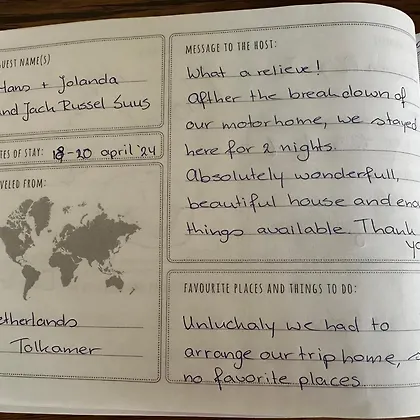 GUEST NAME(S)
Hans + Jolanda
and Jack Russel Suus
DATES OF STAY: 18-20 april '24
TRAVELED FROM:
Netherlands
Tolkamer
MESSAGE TO THE HOST:
What a relieve!
Afther the breakdown of
our motorhome, we stayed
here for 2 nights.
Absolutely wonderfull,
beautiful house and
things available. Thank
FAVOURITE PLACES AND THINGS TO DO:
Unluchaly we had to
arrange our trip home,
no favorite places